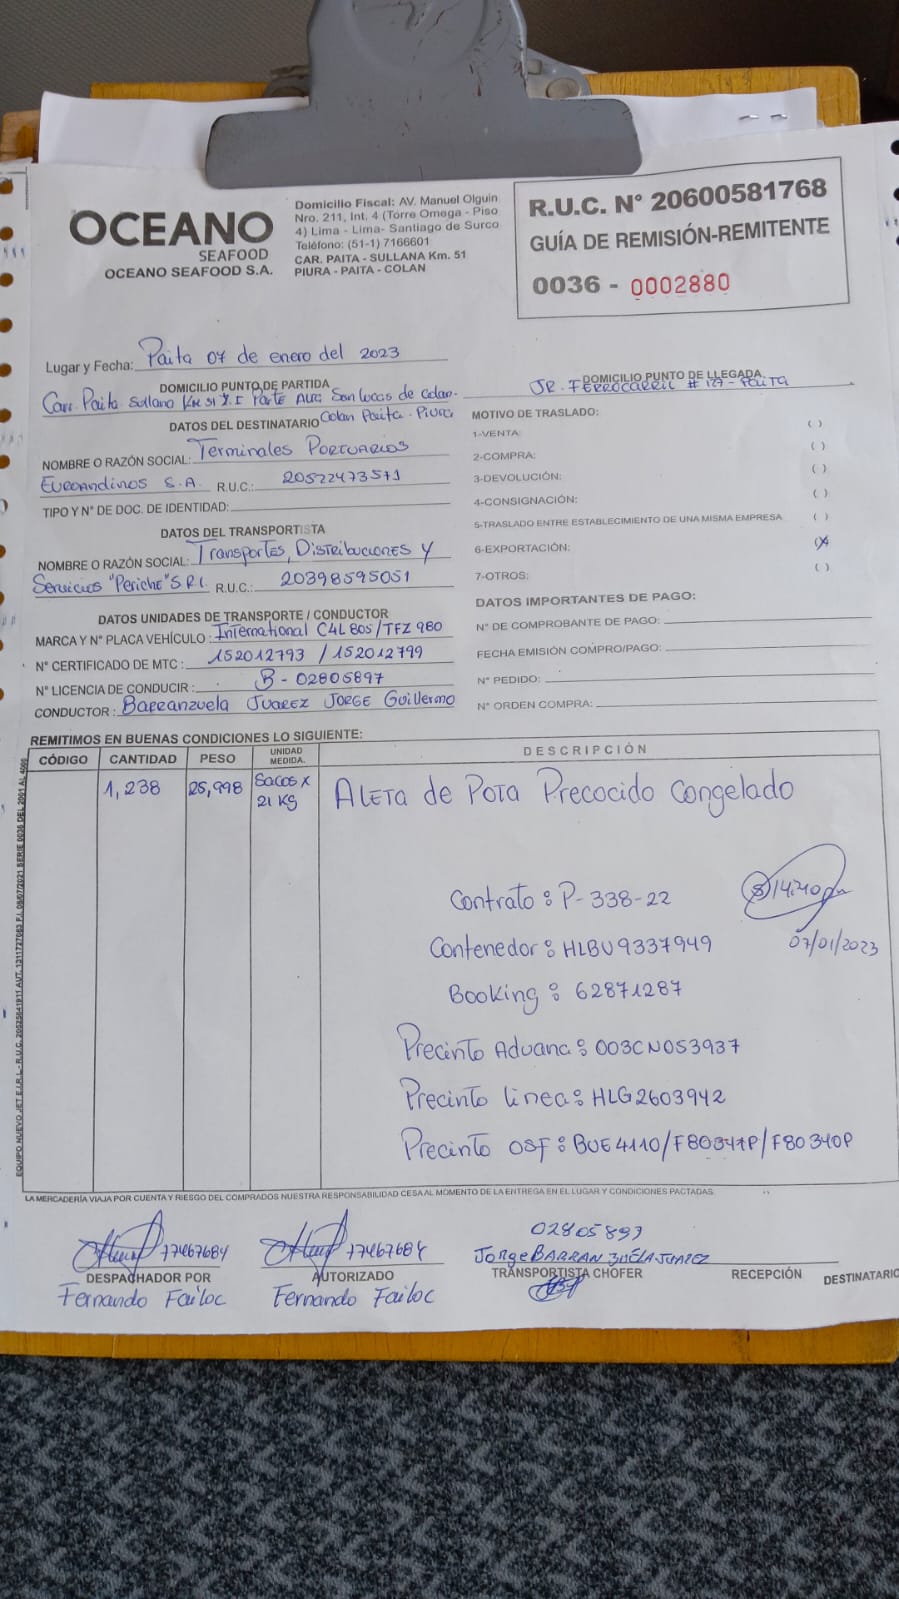 OCEANO
SEAFOOD
OCEANO SEAFOOD S.A.
Domicilio Fiscal: AV. Manuel Olguin
Nro. 211, Int. 4 (Torre Omega - Piso
4) Lima - Lima- Santiago de Surco
Teléfono: (51-1) 7166601
CAR. PAITA - SULLANA Km. 51
PIURA - PAITA - COLAN
R.U.C. N° 20600581768
GUÍA DE REMISIÓN-REMITENTE
0036 - 0002880
Lugar y Fecha: Paita 07 de enero del 2023
DOMICILIO PUNTO DE PARTIDA
Carr. Paita Sullana KM 51 Z.I Parte Alta San Lucas de Colan-
Colan Paita - Piura
DOMICILIO PUNTO DE LLEGADA
JR. FERROCARRIL # 127 - PAITA
DATOS DEL DESTINATARIO
NOMBRE O RAZÓN SOCIAL: Terminales Portuarios
Euroandinos S.A. R.U.C.: 20522473571
TIPO Y N° DE DOC. DE IDENTIDAD:
DATOS DEL TRANSPORTISTA
NOMBRE O RAZÓN SOCIAL: Transportes, Distribuciones y
Servicios "Periche" S.R.L R.U.C.: 20398595051
DATOS UNIDADES DE TRANSPORTE / CONDUCTOR
MARCA Y N° PLACA VEHÍCULO: International C4L 805/TFZ 980
N° CERTIFICADO DE MTC: 152012793 / 152012799
N° LICENCIA DE CONDUCIR: B - 02805897
CONDUCTOR: Barranzuela Juarez Jorge Guillermo
MOTIVO DE TRASLADO:
1-VENTA: ( )
2-COMPRA: ( )
3-DEVOLUCIÓN: ( )
4-CONSIGNACIÓN: ( )
5-TRASLADO ENTRE ESTABLECIMIENTO DE UNA MISMA EMPRESA ( )
6-EXPORTACIÓN: (X)
7-OTROS: ( )
DATOS IMPORTANTES DE PAGO:
N° DE COMPROBANTE DE PAGO:
FECHA EMISIÓN COMPRO/PAGO:
N° PEDIDO:
N° ORDEN COMPRA:
REMITIMOS EN BUENAS CONDICIONES LO SIGUIENTE:
CÓDIGO CANTIDAD PESO UNIDAD MEDIDA. DESCRIPCIÓN
1,238 25,998 Sacos x 21 KG Aleta de Pota Precocido Congelado
Contrato: P-338-22
14:40 pm
07/01/2023
Contenedor: HLBU9337949
Booking: 62871287
Precinto Aduana: 003CN053937
Precinto linea: HLG2603942
Precinto OSF: BUE4110/F80347P/F80340P
LA MERCADERÍA VIAJA POR CUENTA Y RIESGO DEL COMPRADOS NUESTRA RESPONSABILIDAD CESA AL MOMENTO DE LA ENTREGA EN EL LUGAR Y CONDICIONES PACTADAS.
77467684
DESPACHADOR POR
Fernando Failoc
77467684
AUTORIZADO
Fernando Failoc
02805897
Jorge BARRANZUELA JUAREZ
TRANSPORTISTA CHOFER
RECEPCIÓN
DESTINATARIO